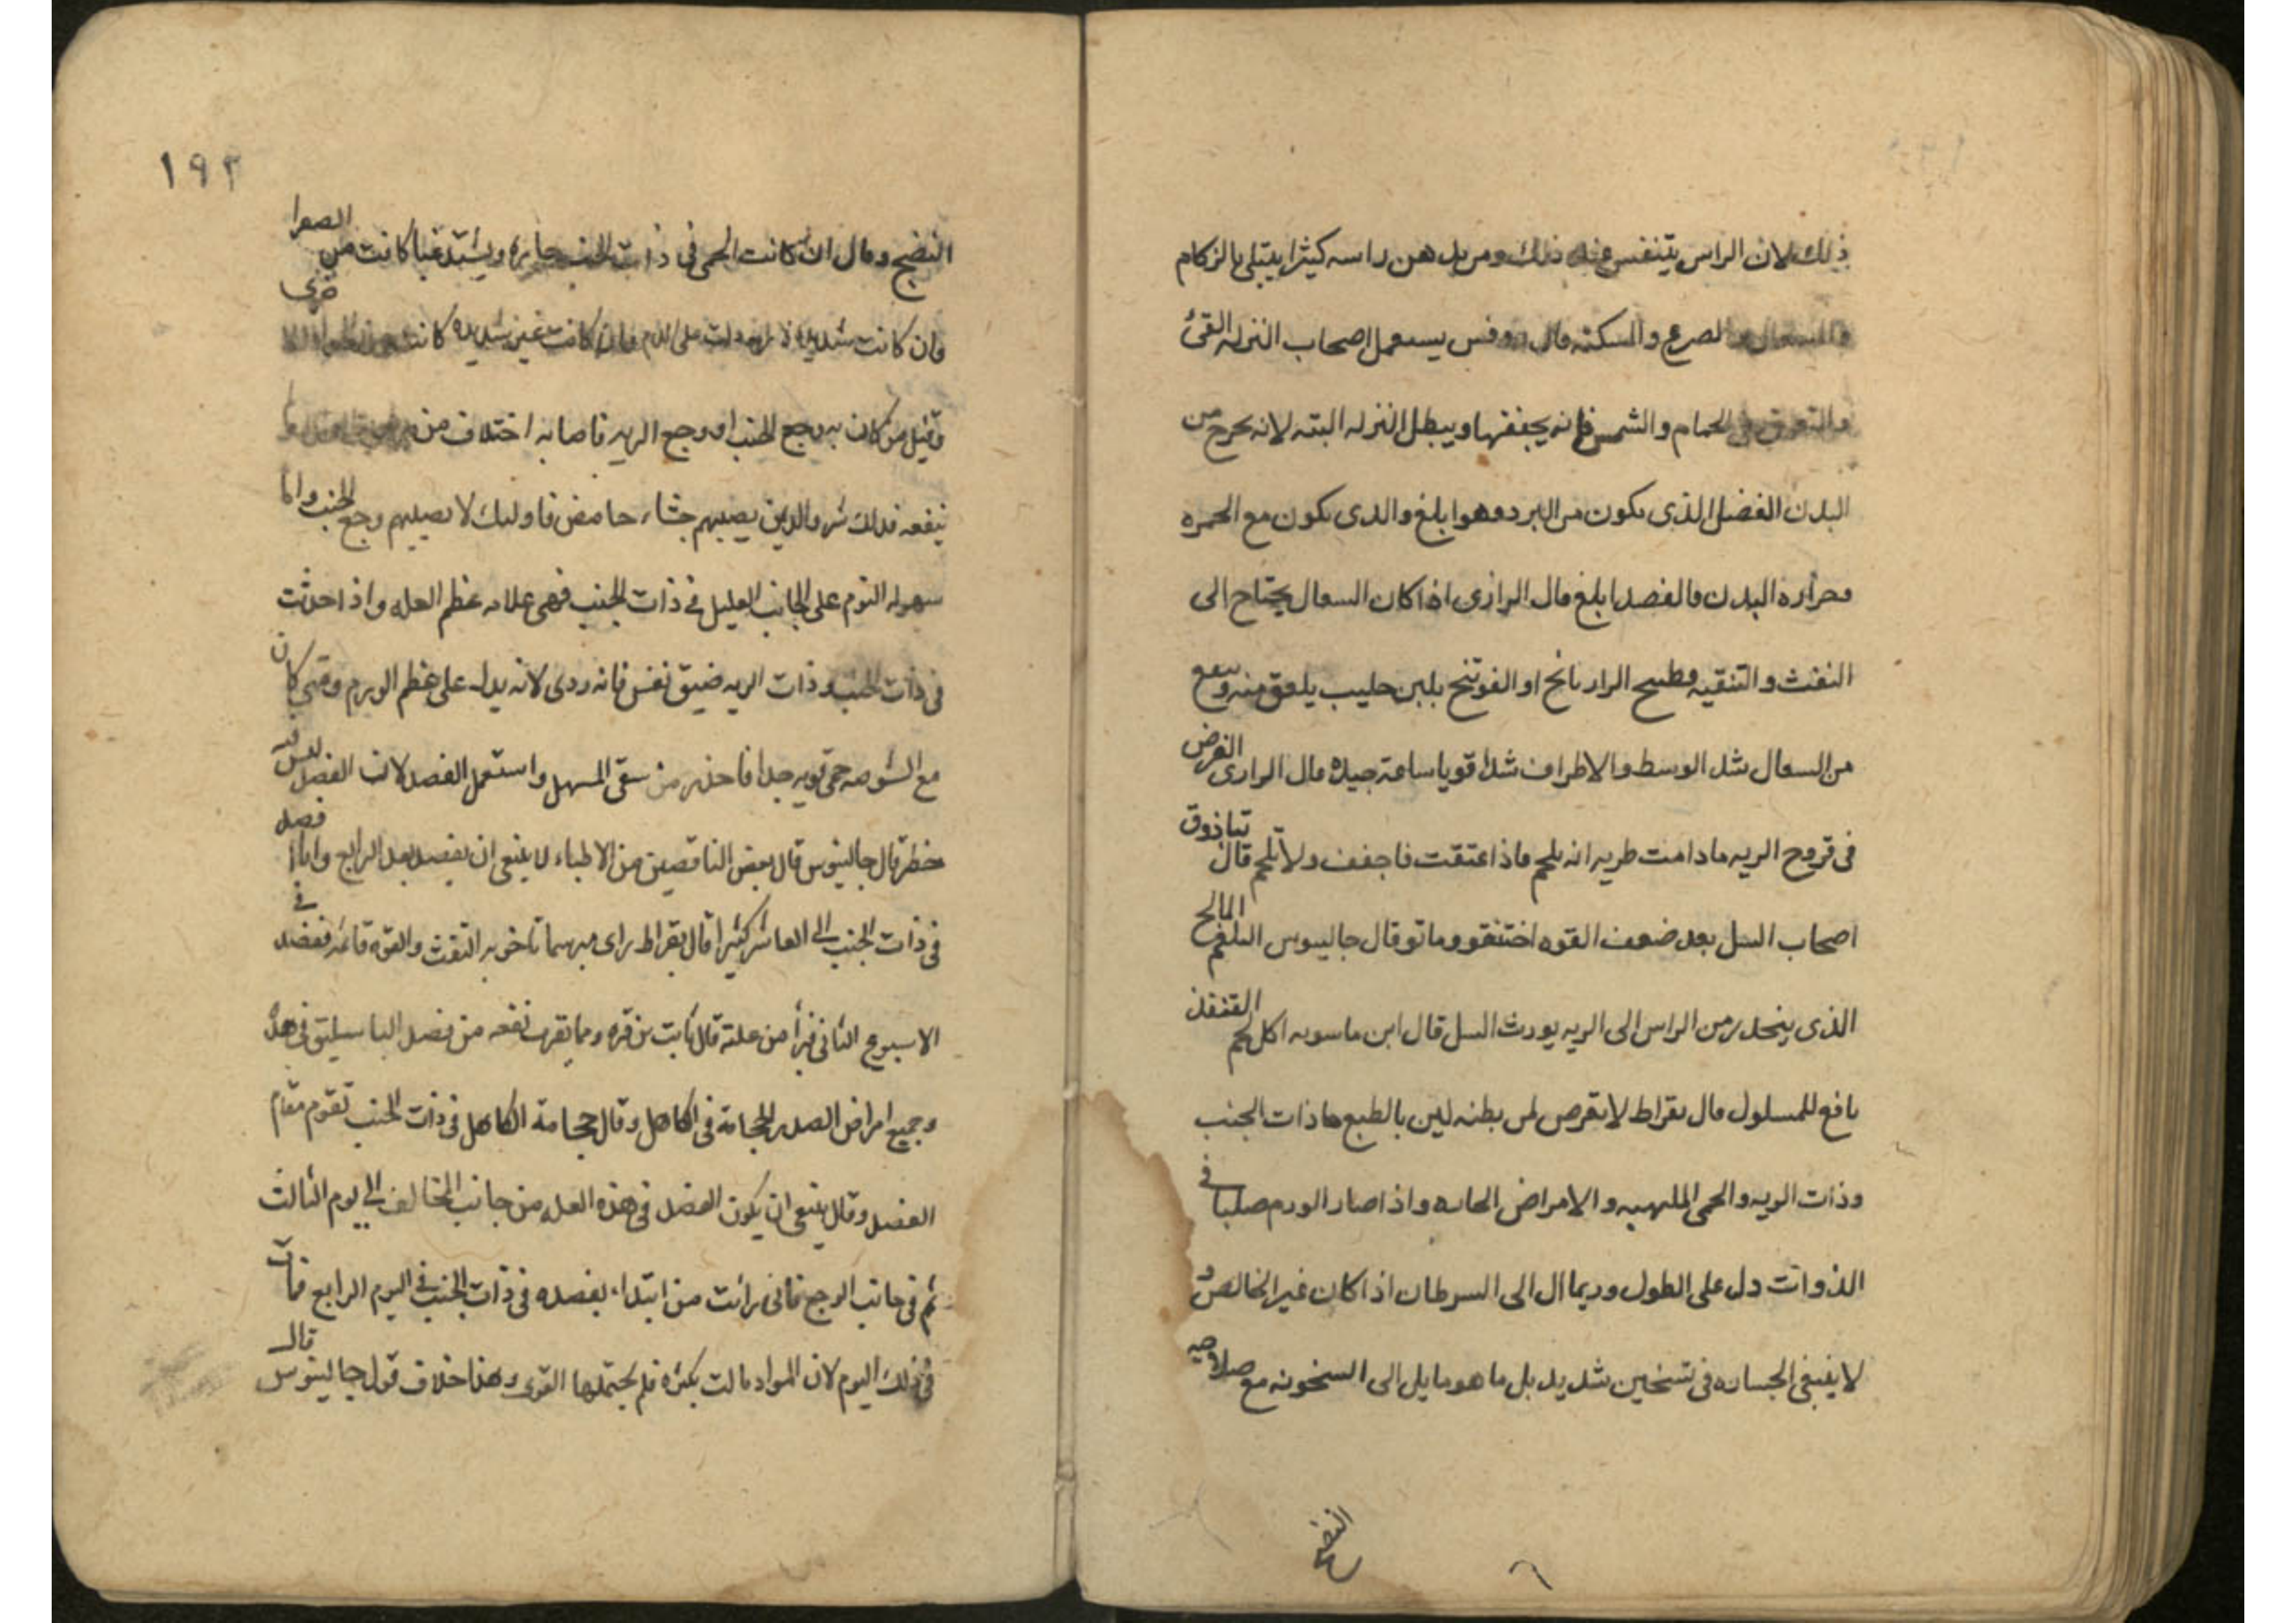 ذلك لان الراس يتنفس منه ذلك ومن يدهن راسه كثيرا يبتلى بالزكام
والسعال والصرع والسكته قال روفس يستعمل اصحاب النزله القئ
والتعرق في الحمام والشمس فانه يجففها ويبطل النزله البته لانه يخرج من
البدن الفضل الذى يكون من البرد وهو ابلغ والذى يكون مع الحمره
وحراره البدن فالفصد ابلغ قال الرازى اذا كان السعال يحتاج الى
النفث والتنقيه فطبيح الرازيانج او الفوتنج بلبن حليب يلعق منه وينفع
من السعال شد الوسط والاطراف شدا قويا ساعة جيده قال الرازى الغرض
فى قروح الريه مادامت طريه انه يلحم فاذا عتقت فاجفف ولا تلحم قال تياذوق
اصحاب السل بعد ضعف القوه اختنقو وماتو قال جالينوس البلغم المالح
الذى ينحدر من الراس الى الريه يورث السل قال ابن ماسويه اكل لحم القنفذ
نافع للمسلول قال بقراط لا تعرض لمن بطنه لين بالطبع ذات الجنب
وذات الريه والحمى الملهبه والامراض الحاده واذا صار الورم صلبا فى
الذوات دل على الطول وربما ال الى السرطان اذا كان غير الخالص و
لا ينبغى الجساره فى تسخين شديد بل ما هو مايل الى السخونه مع صلاحيه
النضج
١٩٢
النضج وقال ان كانت الحمى فى ذات الجنب حاره ويشتد غبا كانت من الصفرا
وان كانت شديده دلت على الدم وان كانت غير شديده كانت من
وقيل من كان به وجع الجنب او وجع الريه فاصابه اختلاف من
ينفعه فذلك شر والذين يصيبهم جشاء حامض فاوليك لا يصيبهم وجع الجنب واما
سهوله النوم على الجانب العليل فى ذات الجنب فهى علامه عظم العله واذا حدثت
فى ذات الجنب وذات الريه ضيق نفس فانه ردى لانه يدل على عظم الورم ومتى كان
مع الشوصه حمى قويه جدا فاحذر من سقى المسهل واستعمل الفصد لان الفصد ليس فيه
خطر قال جالينوس قال بعض الناقصين من الاطباء لا ينبغى ان يفصد بعد الرابع وانا فصد
فى ذات الجنب الى العاشر كثيرا قال بقراط راى مبرسما تاخر به النفث والقوه قائمه ففصد فى
الاسبوع الثانى فبرأ من علته قال ثابت بن قره ومما يقرب نفعه من فصد الباسيليق فى هذه
وجميع امراض الصدر الحجامة فى الكاهل وقال حجامة الكاهل فى ذات الجنب تقوم مقام
الفصد وقال ينبغى ان يكون الفصد فى هذه العله من جانب المخالف الى يوم الثالث
ثم فى جانب الوجع فانى رائت من ابتداء بفصده فى ذات الجنب فى اليوم الرابع فمات
فى ذلك اليوم لان المواد مالت بكثره فلم يحتملها القوى وهذا خلاف قول جالينوس قال